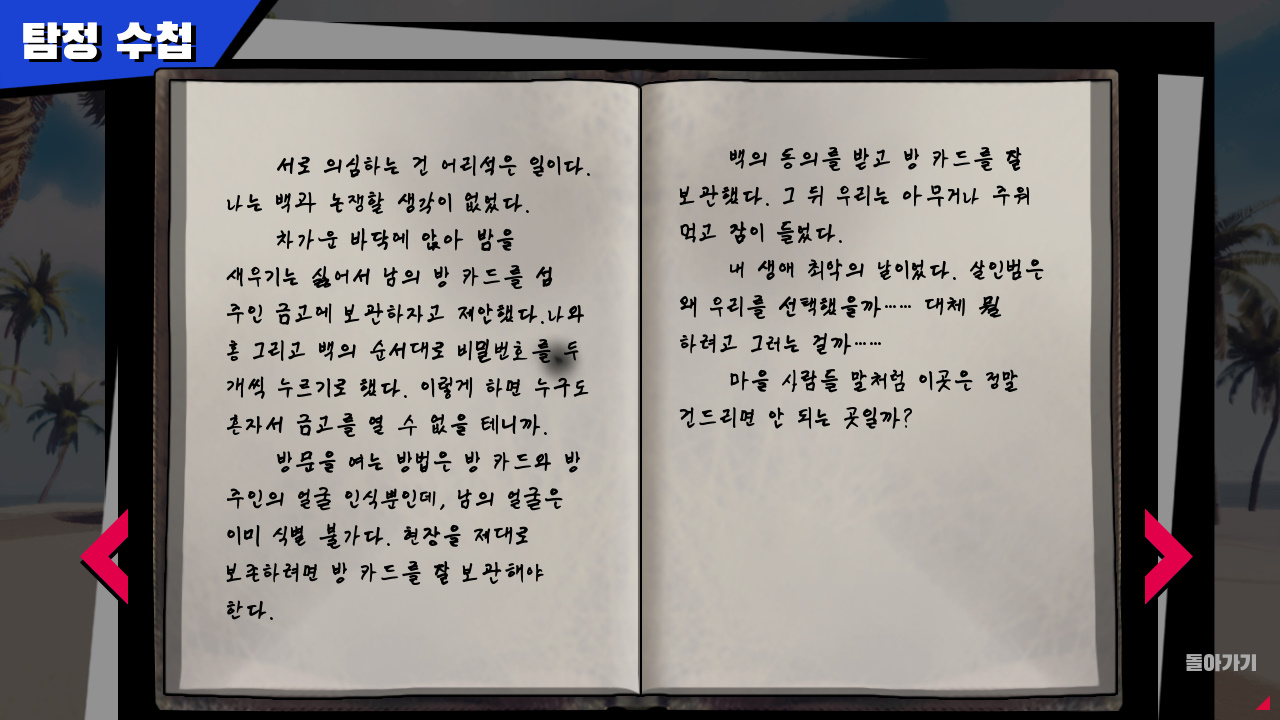 탐정 수첩
서로 의심하는 건 어리석은 일이다.
나는 백과 논쟁할 생각이 없었다.
차가운 바닥에 앉아 밤을
새우기는 싫어서 남의 방 카드를 섬
주인 금고에 보관하자고 제안했다.나와
홍 그리고 백의 순서대로 비밀번호를 두
개씩 누르기로 했다. 이렇게 하면 누구도
혼자서 금고를 열 수 없을 테니까.
방문을 여는 방법은 방 카드와 방
주인의 얼굴 인식뿐인데, 남의 얼굴은
이미 식별 불가다. 현장을 제대로
보존하려면 방 카드를 잘 보관해야
한다.
백의 동의를 받고 방 카드를 잘
보관했다. 그 뒤 우리는 아무거나 주워
먹고 잠이 들었다.
내 생애 최악의 날이었다. 살인범은
왜 우리를 선택했을까…… 대체 뭘
하려고 그러는 걸까……
마을 사람들 말처럼 이곳은 정말
건드리면 안 되는 곳일까?
돌아가기